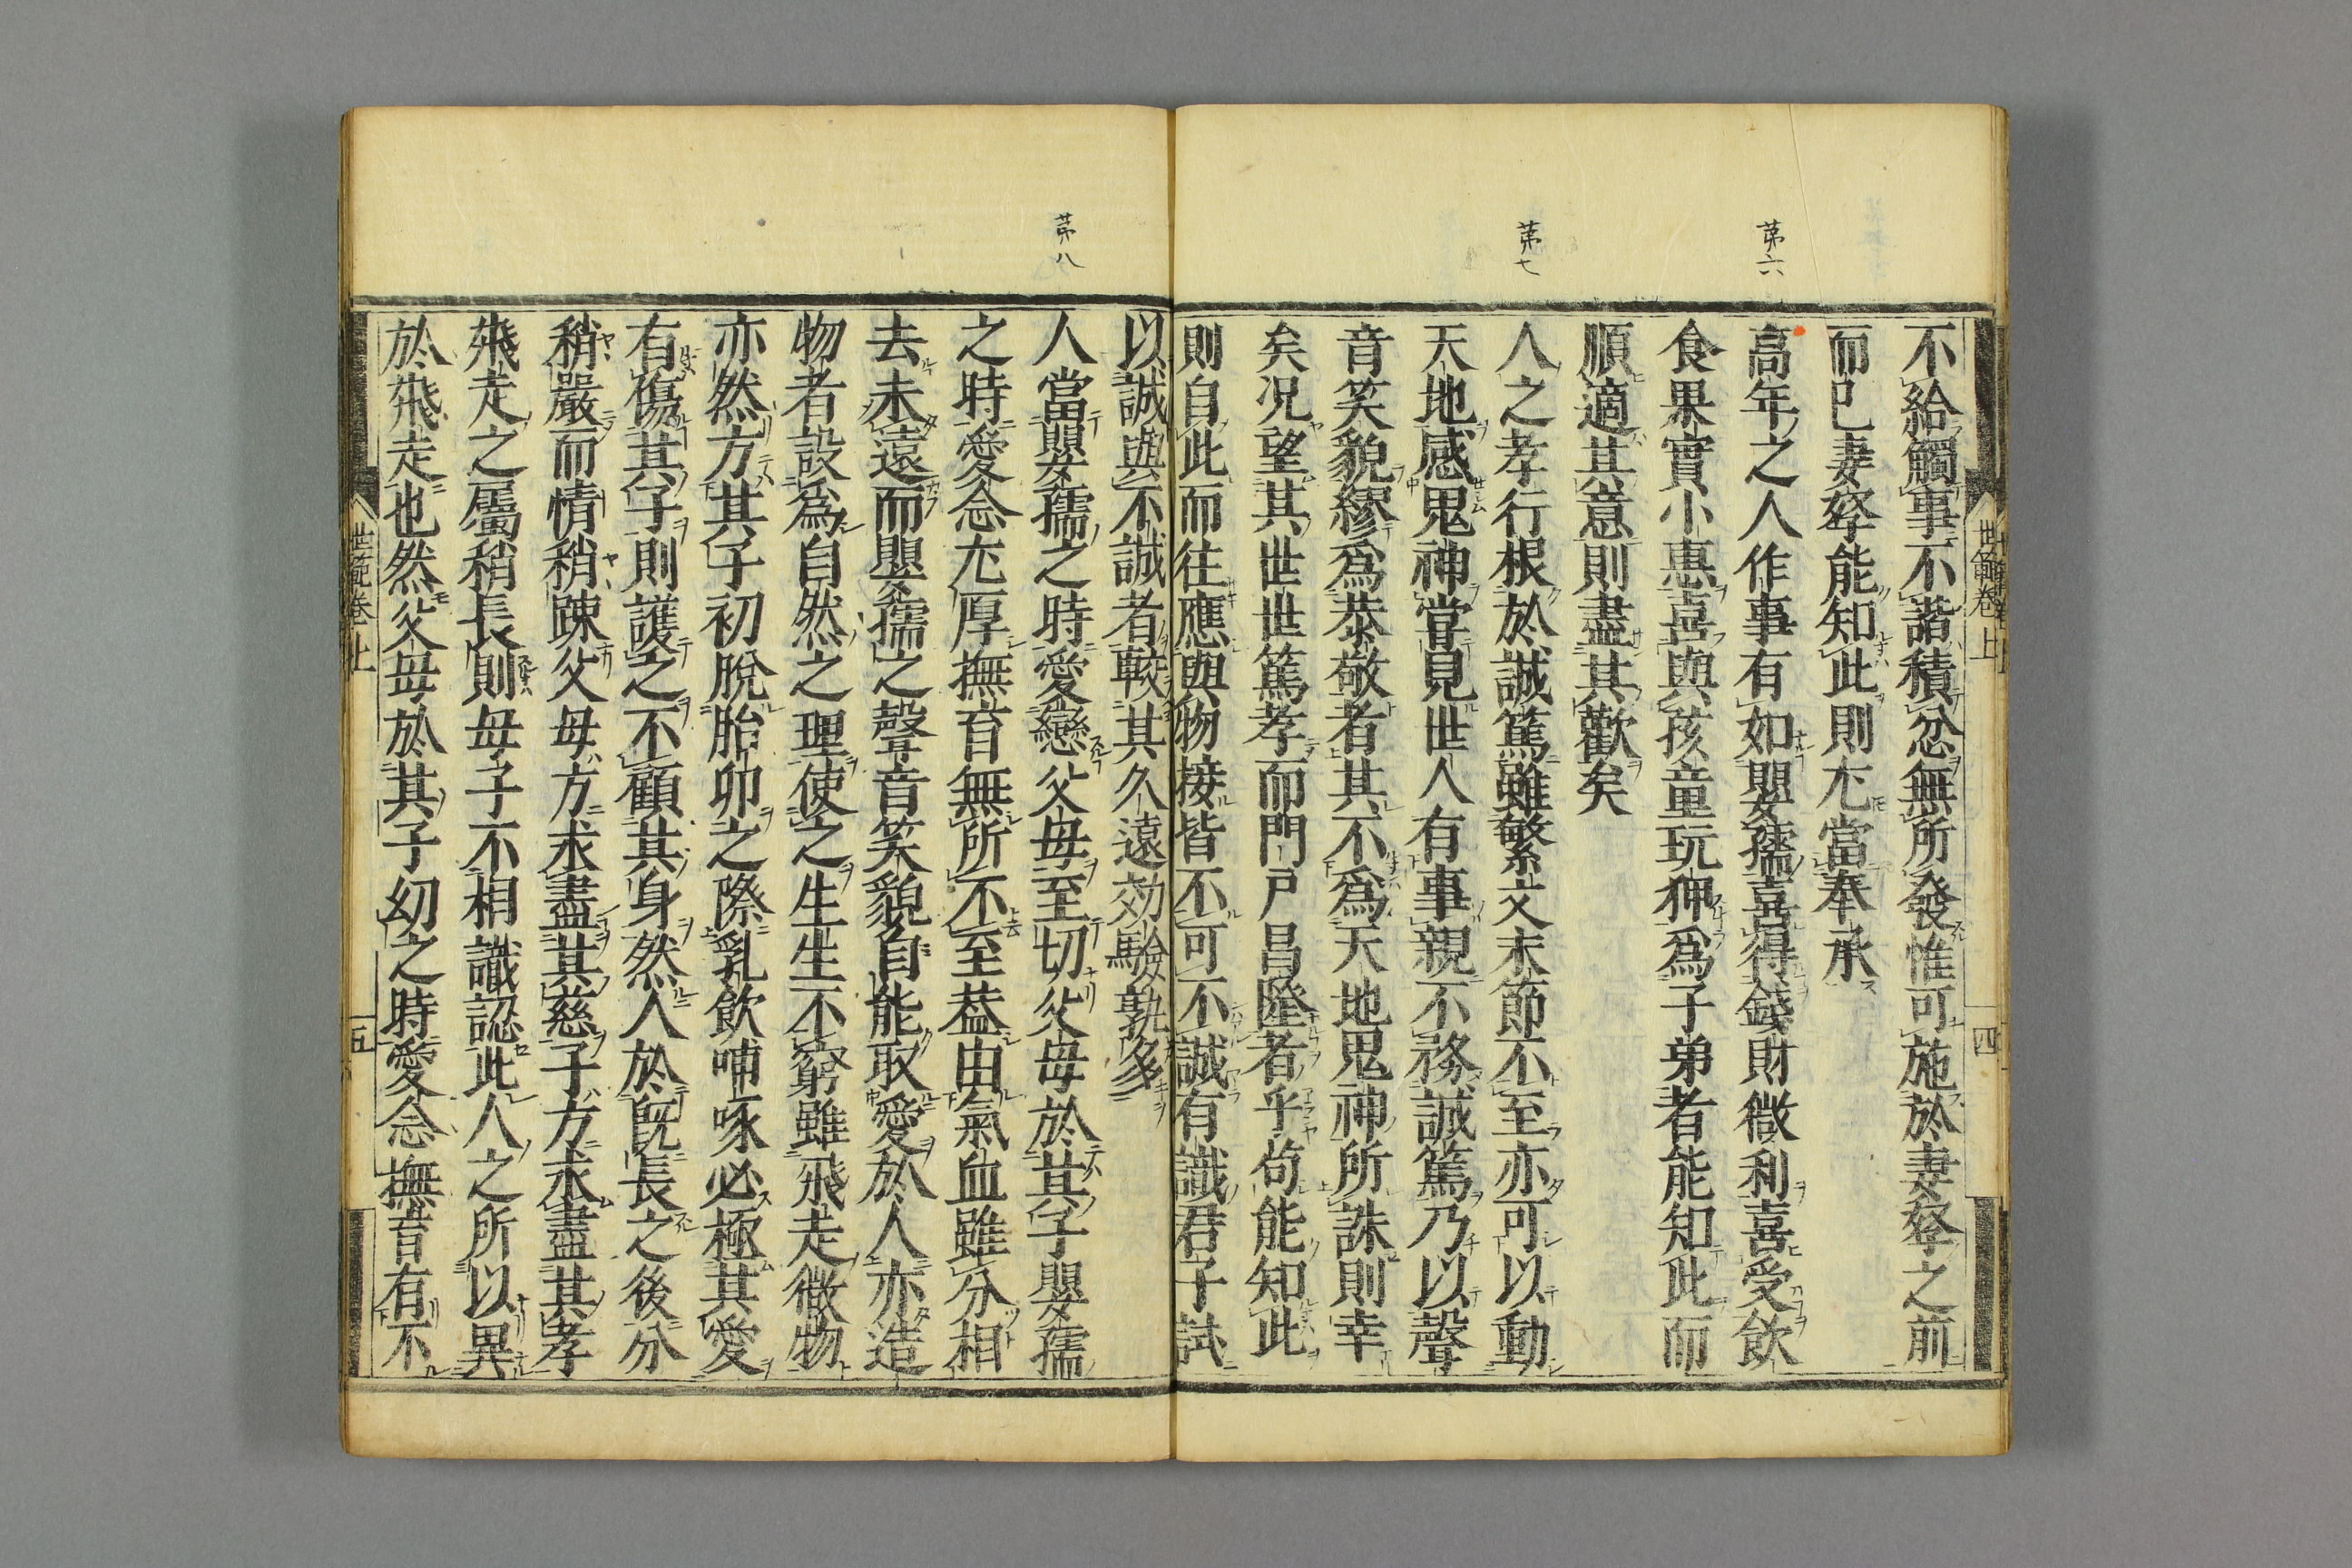 第六
第七
不給觸事不諧積忿無所發惟可施於妻孥之前
而已妻孥能知此則尤當奉承
高年之人作事有如嬰孺喜得錢財微利喜受飲
食果實小惠喜與孩童玩狎爲子弟者能知此而
順適其意則盡其歡矣
人之孝行根於誠篤雖繁文末節不至亦可以動
天地感鬼神嘗見世人有事親不務誠篤乃以聲
音笑貌繆爲恭敬者其不爲天地鬼神所誅則幸
矣况望其世世篤孝而門戸昌隆者乎苟能知此
則自此而往應與物接皆不可不誠有識君子試
世範卷上
四
第八
以誠與不誠者較其久遠効驗孰多
人當嬰孺之時愛戀父母至切父母於其子嬰孺
之時愛念尤厚撫育無所不至葢由氣血雖分相
去未遠而嬰孺之聲音笑貌自能取愛於人亦造
物者設爲自然之理使之生生不窮雖飛走微物
亦然方其子初脫胎卵之際乳飲哺啄必極其愛
有傷其子則護之不顧其身然人於既長之後分
稍嚴而情稍踈父母方求盡其慈子方求盡其孝
飛走之屬稍長則母子不相識認此人之所以異
於飛走也然父母於其子幼之時愛念撫育有不
世範卷上
五